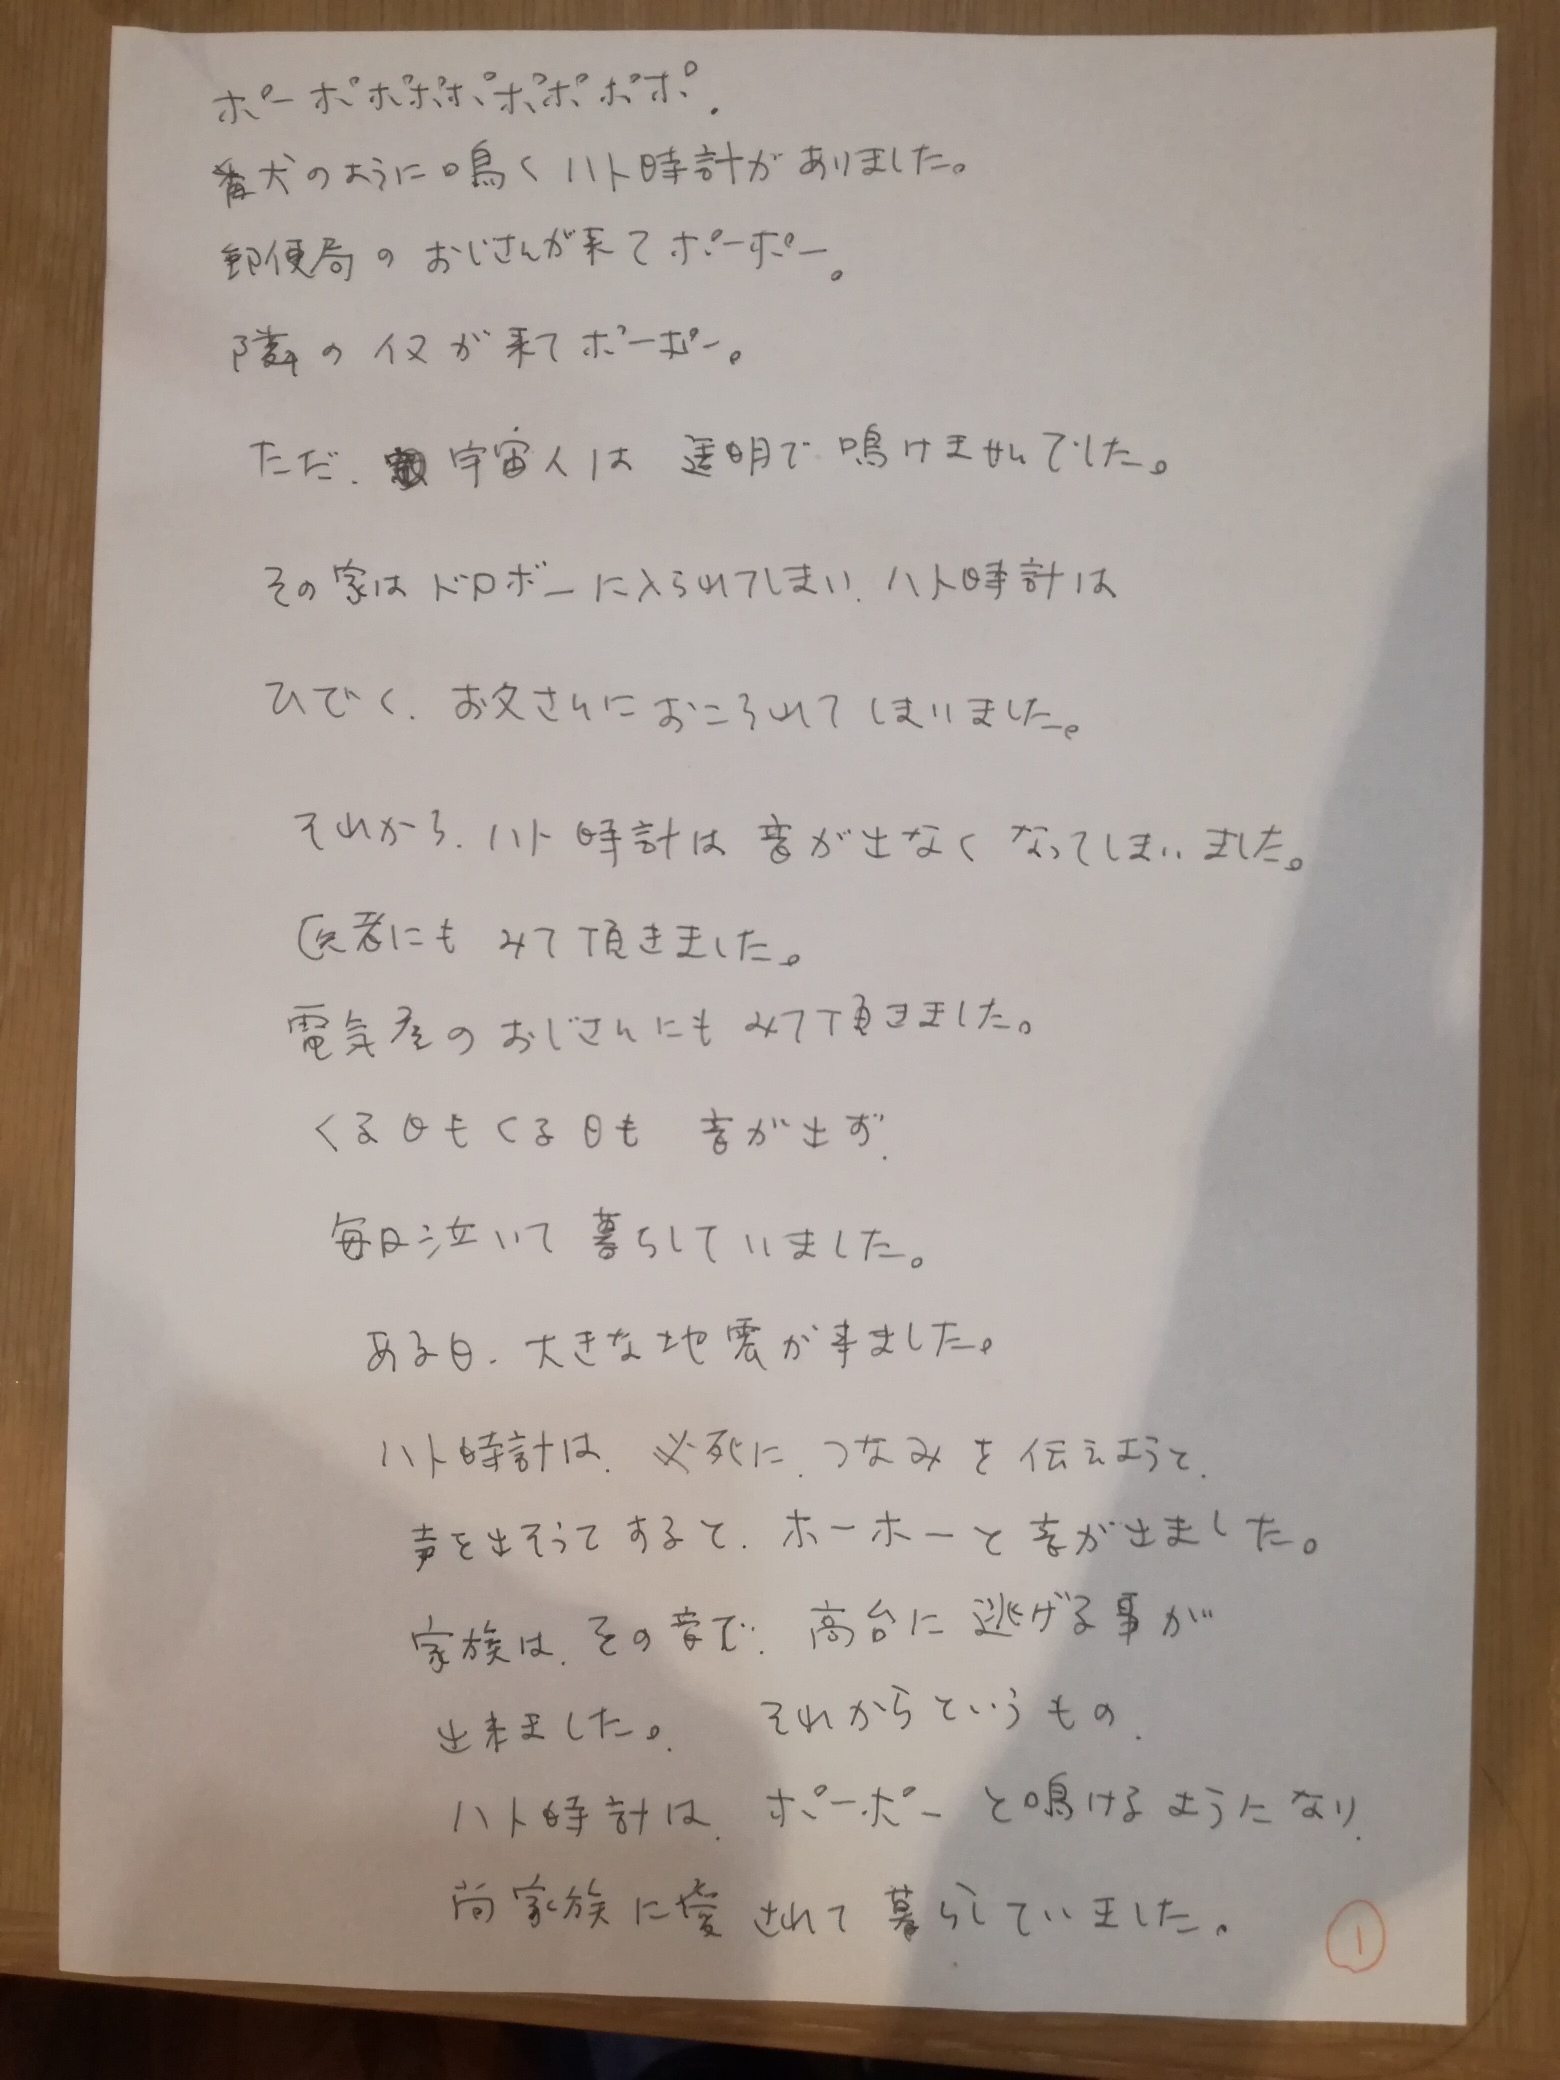 ポーポポポポポポポポ.
番犬のように鳴くハト時計がありました。
郵便局のおじさんが来てポーポー。
隣の仅が来てポーポー。
ただ、宇宙人は透明で鳴けませんでした。
その家はドロボーに入られてしまい、ハト時計は
ひでく、お父さんにおこられてしまいました。
それから、ハト時計は音が出なくなってしまいました。
医者にもみて頂きました。
電気屋のおじさんにもみて頂きました。
くる日もくる日も 音が出ず、
毎日泣いて暮らしていました。
ある日、大きな地震が来ました。
ハト時計は、必死に、つなみを伝えようと、
声を出そうてすると、ホーホーと音が出ました。
家族は、その音で、高台に逃げる事が
出来ました。 それからというもの、
ハト時計は、ポーポーと鳴けるようになり、
尚家族に愛されて暮らしていました。
1